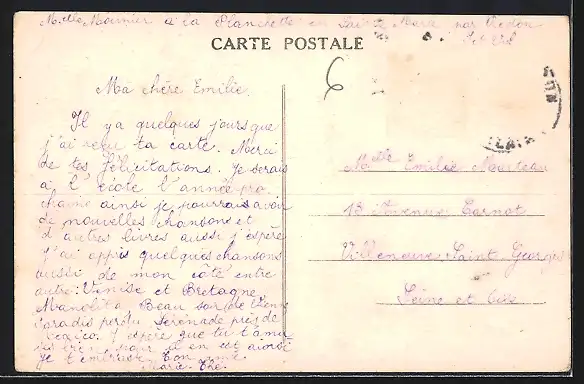 Melle Mounier à la Planchette en Sainte Marie par Redon
I et Vil
CARTE POSTALE
6
Ma chère Emilie.
Il y a quelques jours que
j'ai reçu ta carte. Merci
de tes félicitations. Je serais
à l'école l'année pro
chaine ainsi je pourrais avoir
de nouvelles chansons et
d'autres livres aussi j'espère
j'ai appris quelques chansons
aussi de mon côté entre
autre: Venise et Bretagne,
Manolita Beau soir de Vienne
Paradis perdu Sérénade près de
Mexico. J'espère que tu t'amuses
bien pour moi il en est ainsi
je t'embrasse Ton amie
Marie Thé.
Melle Emilie
13 Avenue Carnot
Villeneuve Saint Georges
Seine et Oise